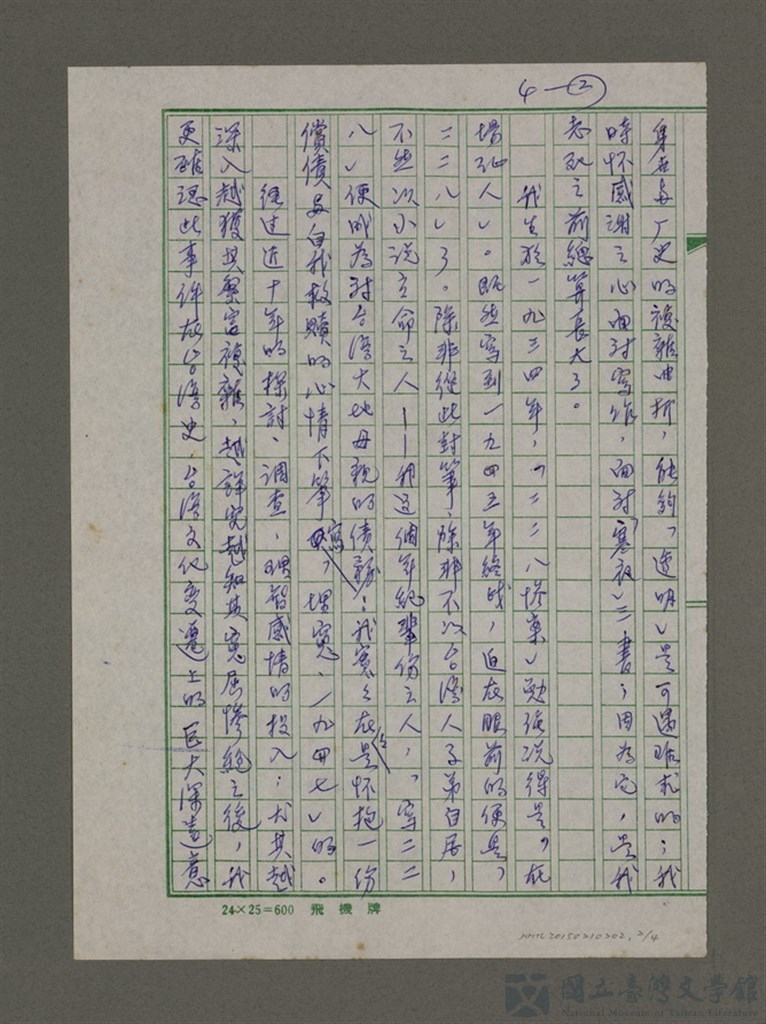 4—②
身在每厂史的複雜曲折，能夠「透明」是可遇难求的；我
時怀感谢之心面对寫作，面对「寒夜」三書；因为它，是我
老死之前總算長大了。
我生於一九三四年，「二二八慘案」勉強说得是「在
場证人」。既然寫到一九四五年终战，迫在眼前的便是「
二二八」了。除非從此封筆，除非不以台湾人子弟自居，
不然以小说立命之人——我這個年紀輩份之人，「寫二二
八」便成为对台湾大地母親的债務；我實々在是怀抱一份
償债與自我救贖的心情下筆寫「埋冤一九四七」的。
經过近十年的探討、調查，理智感情的投入；尤其越
深入越獲其繁富複雜，越詳究越知其冤屈慘絕之後，我
更確認此事件在台湾史、台湾文化变遷上的巨大深遠意
24×25=600 飛機牌
NMTL20150210202, 2/4
國立臺灣文學館
National Museum of Taiwan Literature